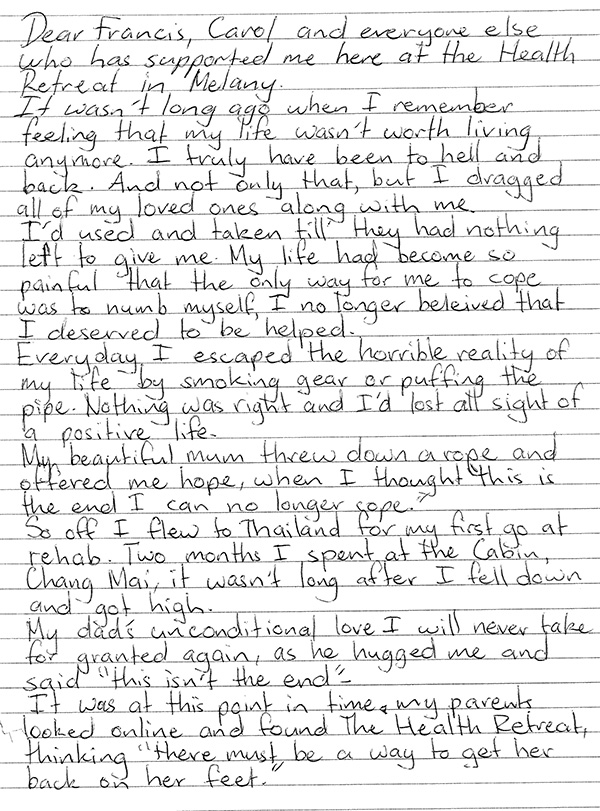 Dear Francis, Carol and everyone else
who has supported me here at the Health
Retreat in Melany.
It wasn't long ago when I remember
feeling that my life wasn't worth living
anymore. I truly have been to hell and
back. And not only that, but I dragged
all of my loved ones along with me.
I'd used and taken till they had nothing
left to give me. My life had become so
painful that the only way for me to cope
was to numb myself, I no longer beleived that
I deserved to be helped.
Everyday I escaped the horrible reality of
my life by smoking gear or puffing the
pipe. Nothing was right and I'd lost all sight of
a positive life.
My beautiful mum threw down a rope and
offered me hope, when I thought "this is
the end I can no longer cope."
So off I flew to Thailand for my first go at
rehab. Two months I spent at the Cabin,
Chang Mai, it wasn't long after I fell down
and got high.
My dad's unconditional love I will never take
for granted again, as he hugged me and
said "this isn't the end"-
It was at this point in time, my parents
looked online and found The Health Retreat,
thinking "there must be a way to get her
back on her feet."